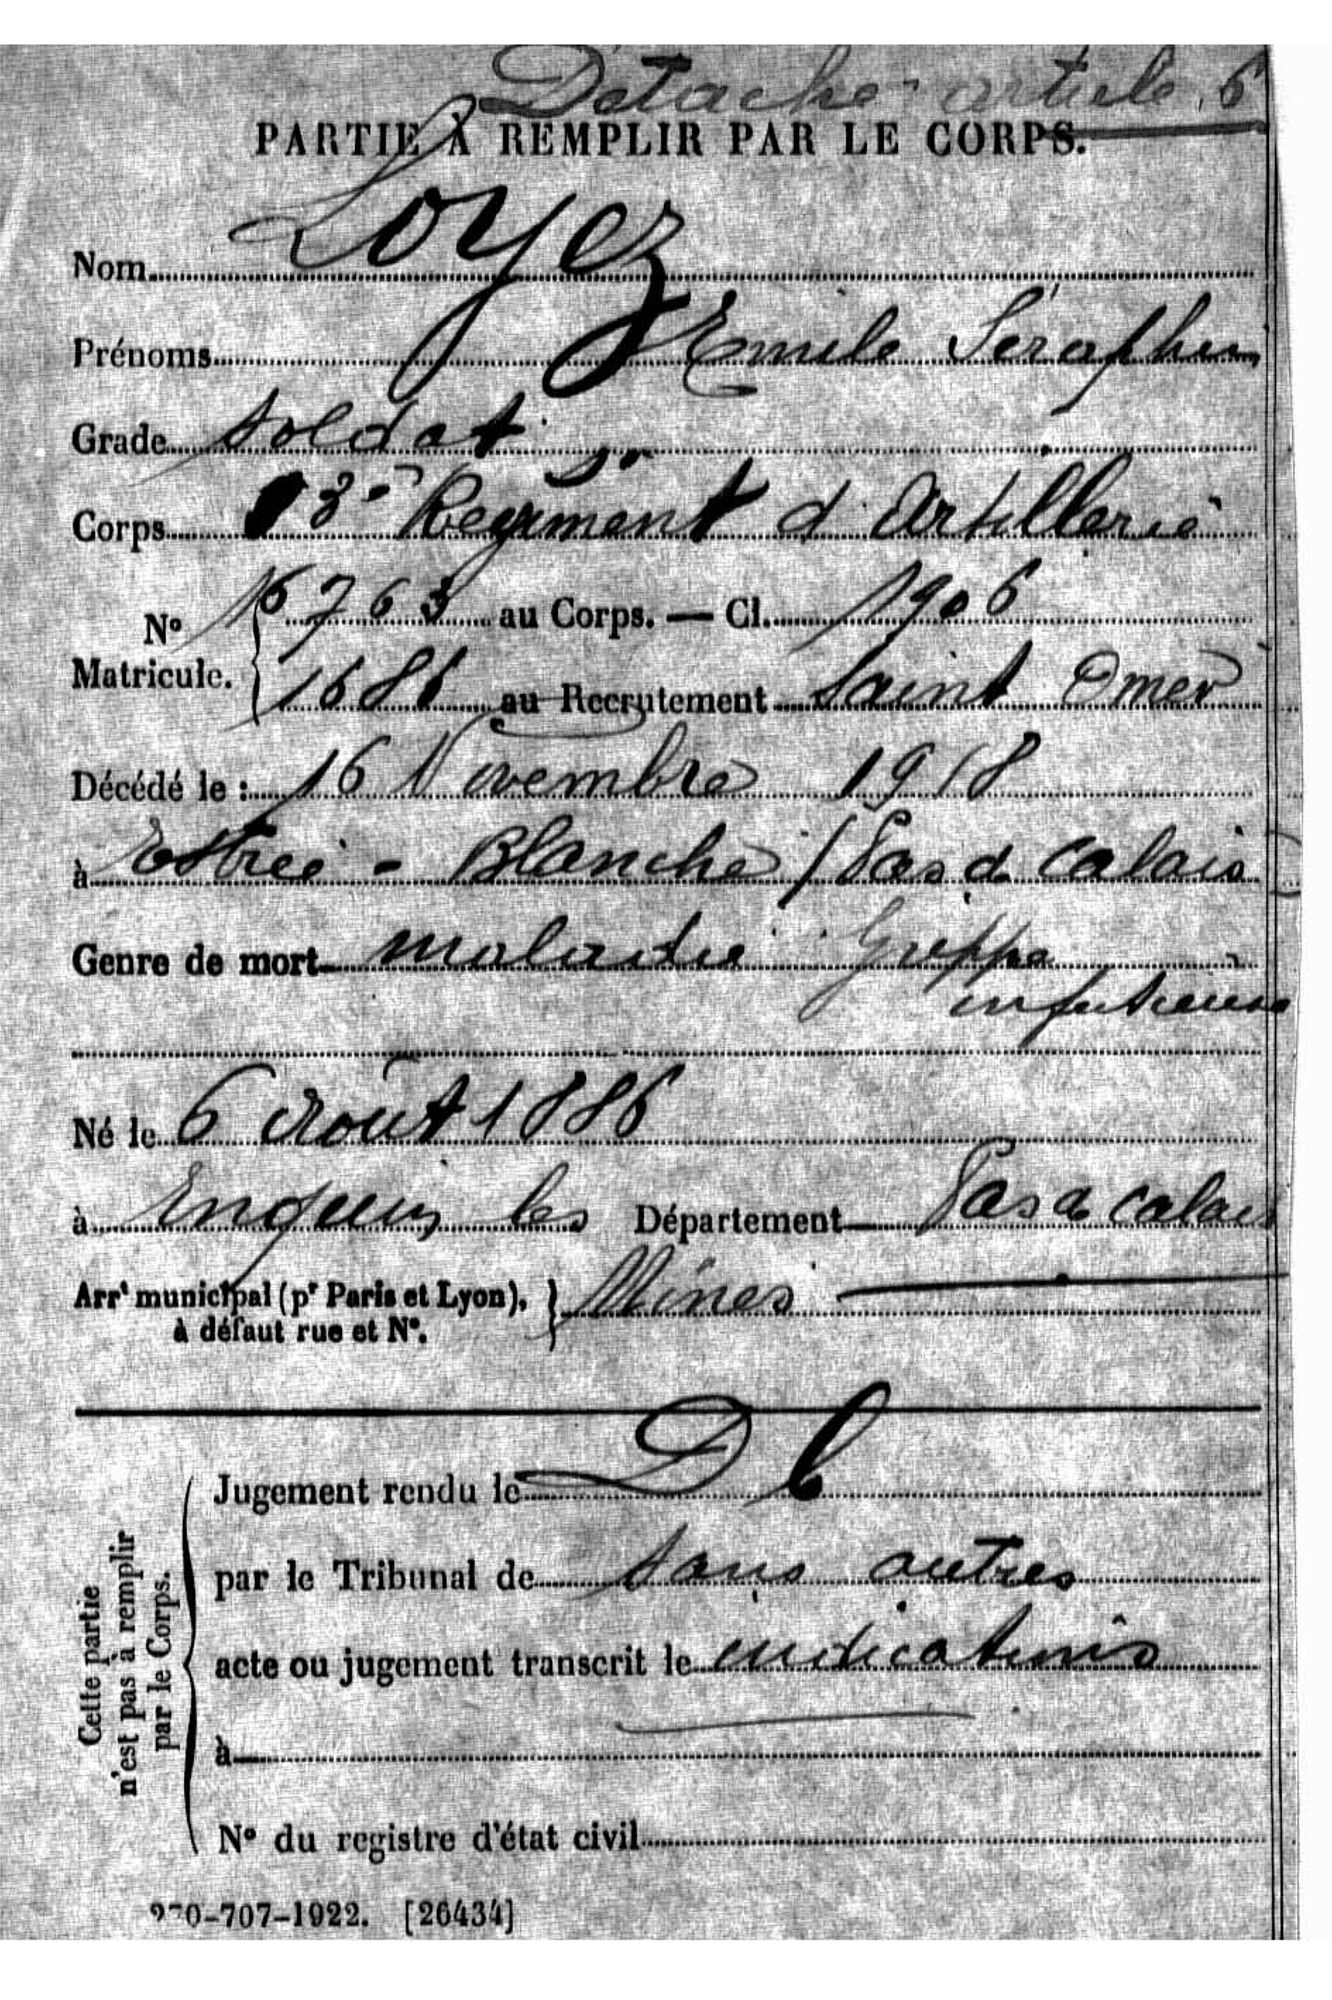 Détaché article 6
PARTIE À REMPLIR PAR LE CORPS.
Nom Loyez
Prénoms Emile Séraphin
Grade soldat
Corps 3e Regiment d'Artillerie
No Matricule. 16763 au Corps. — Cl. 1906
1686 au Recrutement Saint Omer
Décédé le : 16 Novembre 1918
à Estreé - Blanche (Pas d Calais
Genre de mort maladie Grippe
infectieuse
Né le 6 Août 1886
à Enquin les Département Pas d Calais
Arrt municipal (pr Paris et Lyon), à défaut rue et No. } Mines
Cette partie n'est pas à remplir par le Corps.
Jugement rendu le D C
par le Tribunal de sans autres
acte ou jugement transcrit le indications
à
No du registre d'état civil
270-707-1922. [26434]